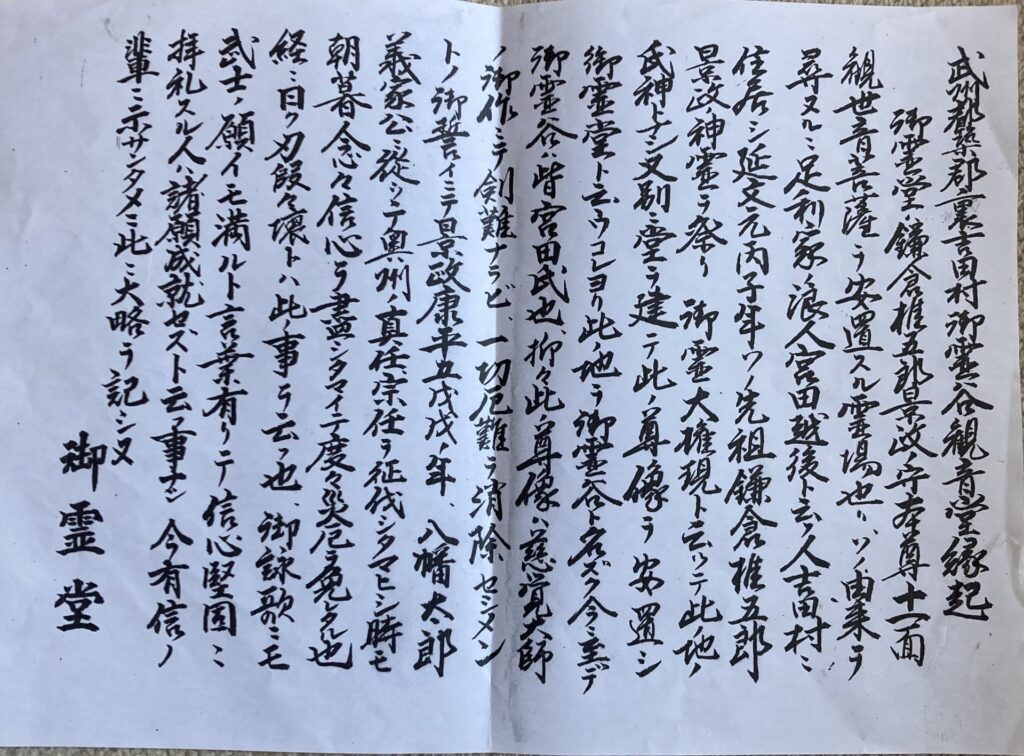 武州都築郡裏吉田村御霊谷観音堂縁起
御霊堂ハ鎌倉権五郎景政ノ守本尊十一面
観世音菩薩ヲ安置スル霊場也、ソノ由来ヲ
尋ヌルニ足利家ノ浪人宮田越後ト云ノ人吉田村ニ
住居シ延文元丙子年ソノ先祖鎌倉権五郎
景政神霊ヲ祭リ 御霊大権現ト云ッテ此ノ地ノ
氏神トナシ又別ニ堂ヲ建テ此ノ尊像ヲ安置シ
御霊堂ト云ウコレヨリ此ノ地ヲ御霊谷ト名ズク今ニ至デ
御霊谷ハ皆宮田氏也、抑々此ノ尊像ハ慈覚大師
ノ御作ニテ剣難ナラビ、一切厄難ヲ消除セシメン
トノ御誓イニテ景政康平五戊戌ノ年、八幡太郎
義家公ニ従ッテ奥州ノ真任宗任ヲ征伐シタマヒシ時モ
朝暮念々信心ヲ盡シタマイテ度々災厄ヲ免レタル也
経ニ曰ク刃段々壊トハ此ノ事ヲ云フ也、御詠歌ニモ
武士ノ願イモ満ルト言葉有リテ信心堅固ニ
拝礼スル人ハ諸願成就セズト云フ事ナシ 今有信ノ
輩ニ示サンタメニ此ニ大略ヲ記シヌ
御霊堂